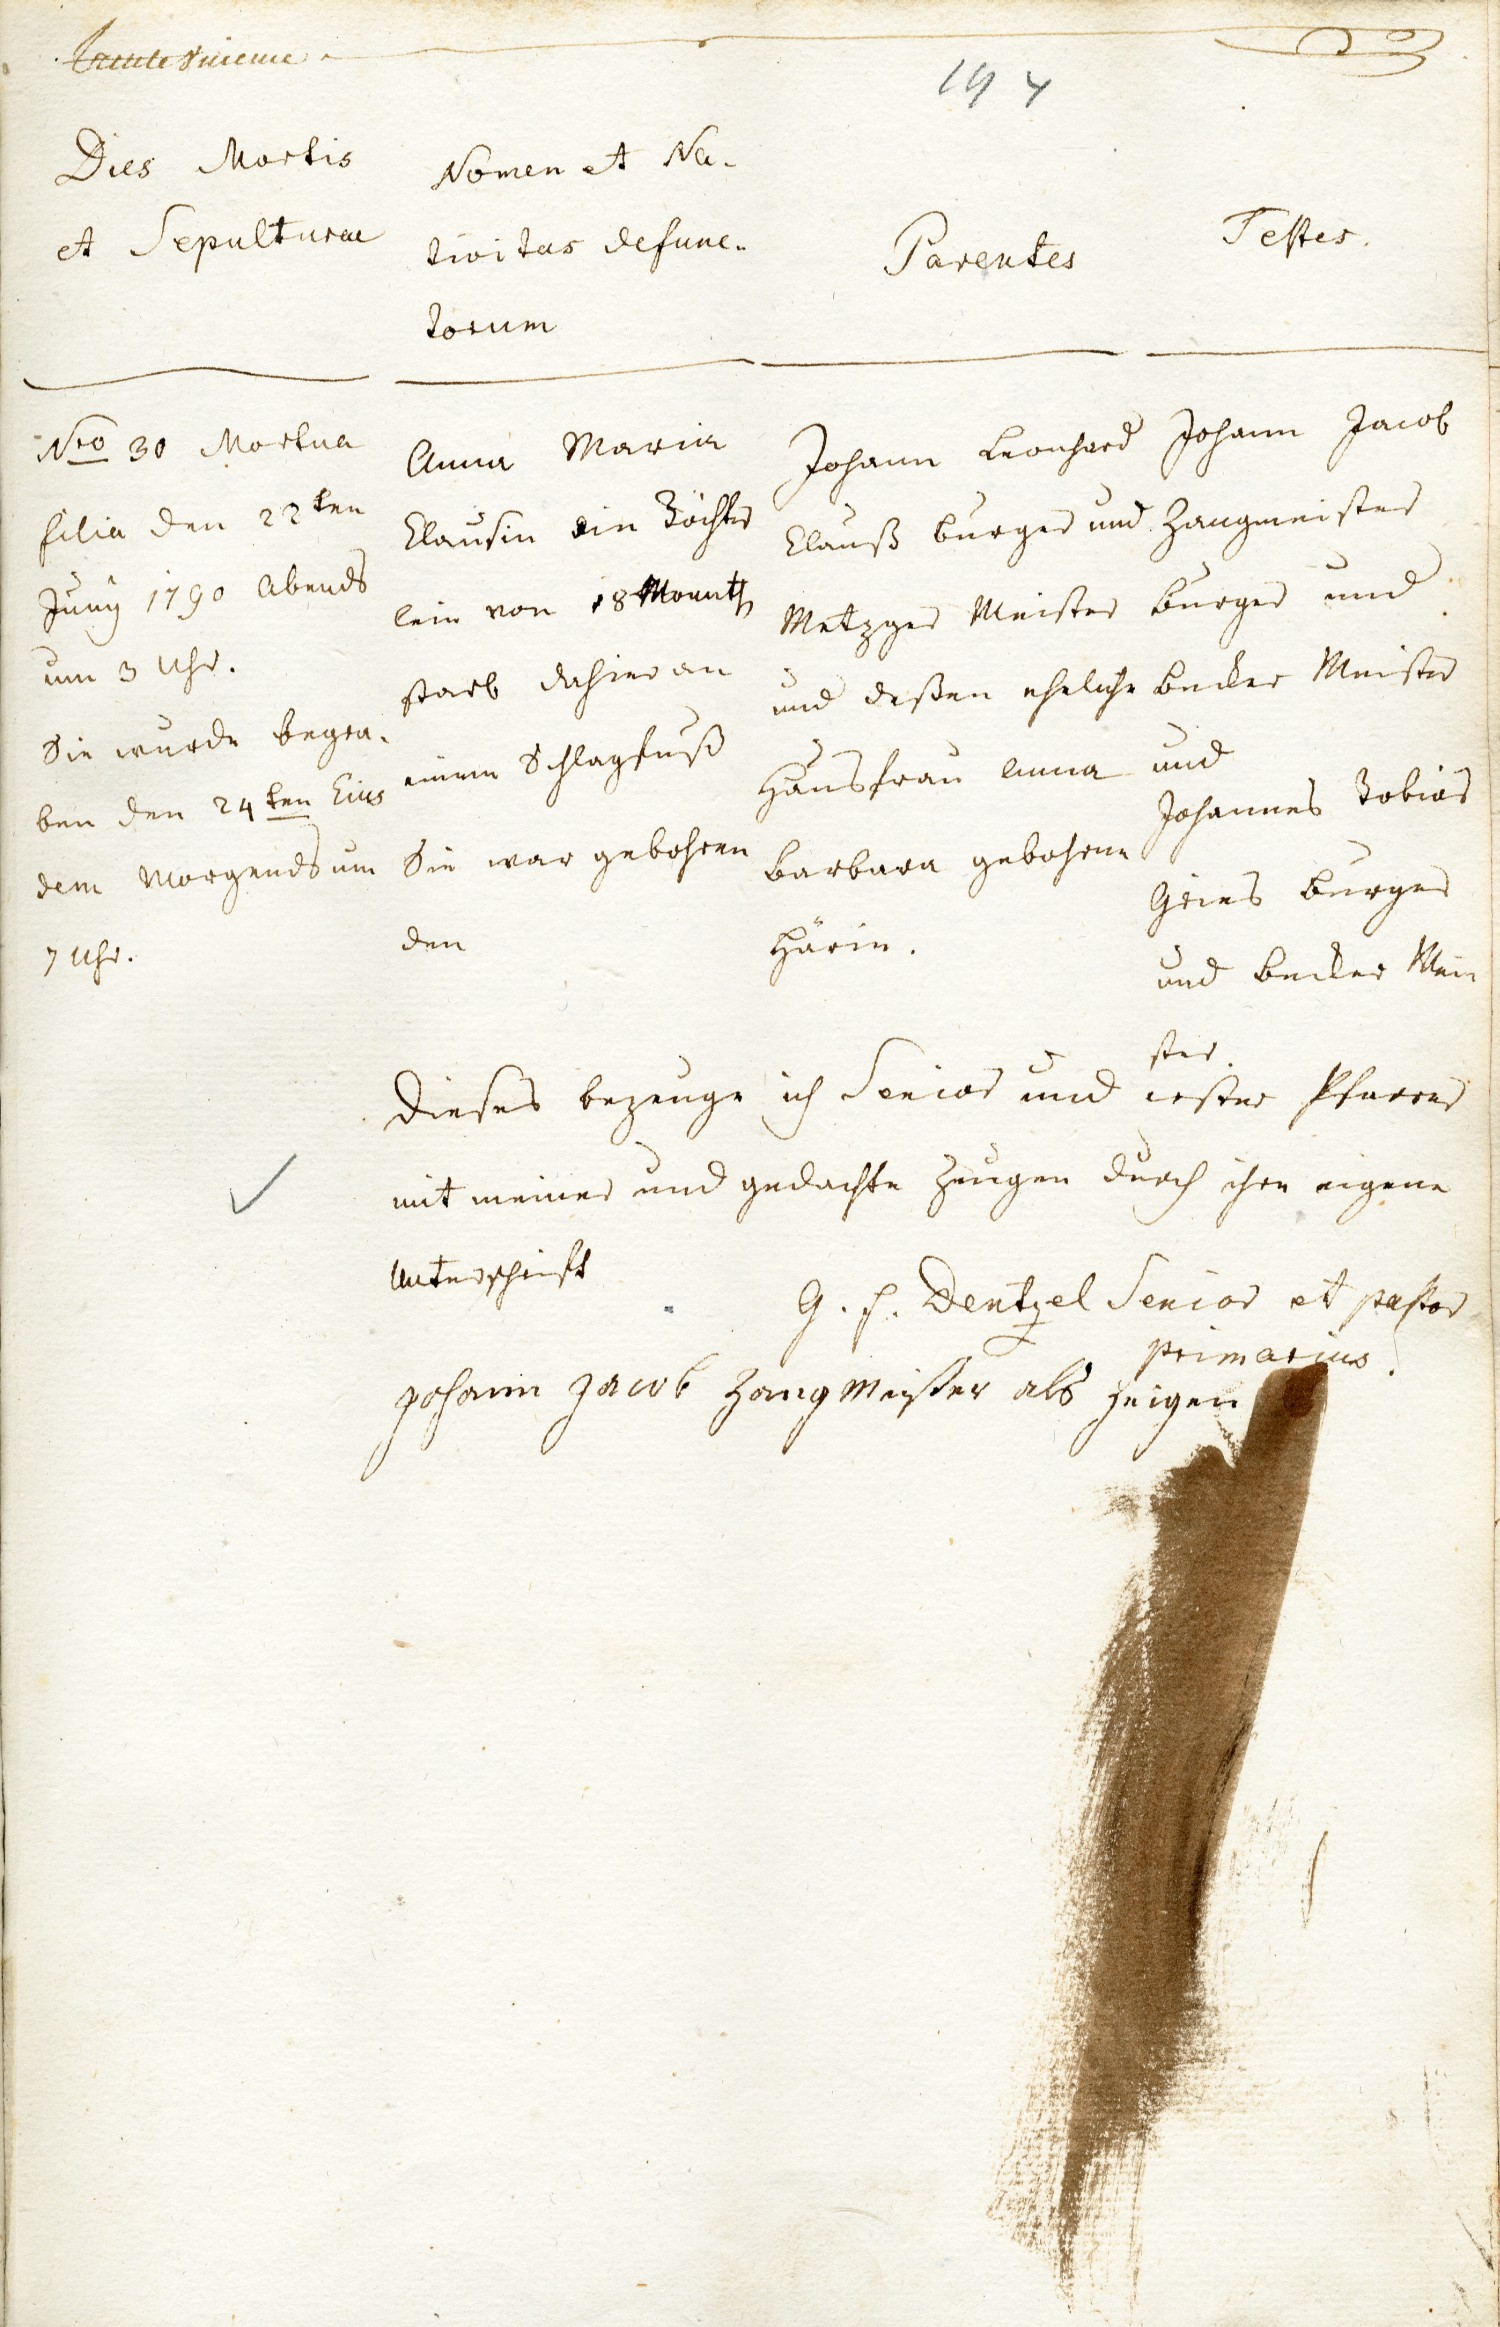 194
Dies Mortis
et Sepulturae
Nomen et Na-
tivitas defunc-
torum
Parentes
Testes.
Nro 30 Mortua
filia den 22ten
Juny 1790 Abends
um 3 Uhr.
Sie wurde begra-
ben den 24ten Eius
dem Morgends um
7 Uhr.
Anna Maria
Clausin ein Töchter
lein von 18 Monath
starb dahier an
einem Schlagfluß
Sie war gebohren
den
Johann Leonhard
Clauß burger und
Metzger Meister
und deßen eheliche
Hausfrau Anna
Barbara gebohrne
Härin.
Johann Jacob
Zangmeister
burger und
becker Meister
und
Johannes Tobias
Gries burger
und becker Mei
ster.
Dieses bezeuge ich Senior und erster Pfarrer
mit meiner und gedachte Zeugen durch ihre eigene
Unterschrift
G. F. Dentzel Senior et pastor
primarius.
Johann Jacob Zangmeister als Zeigen